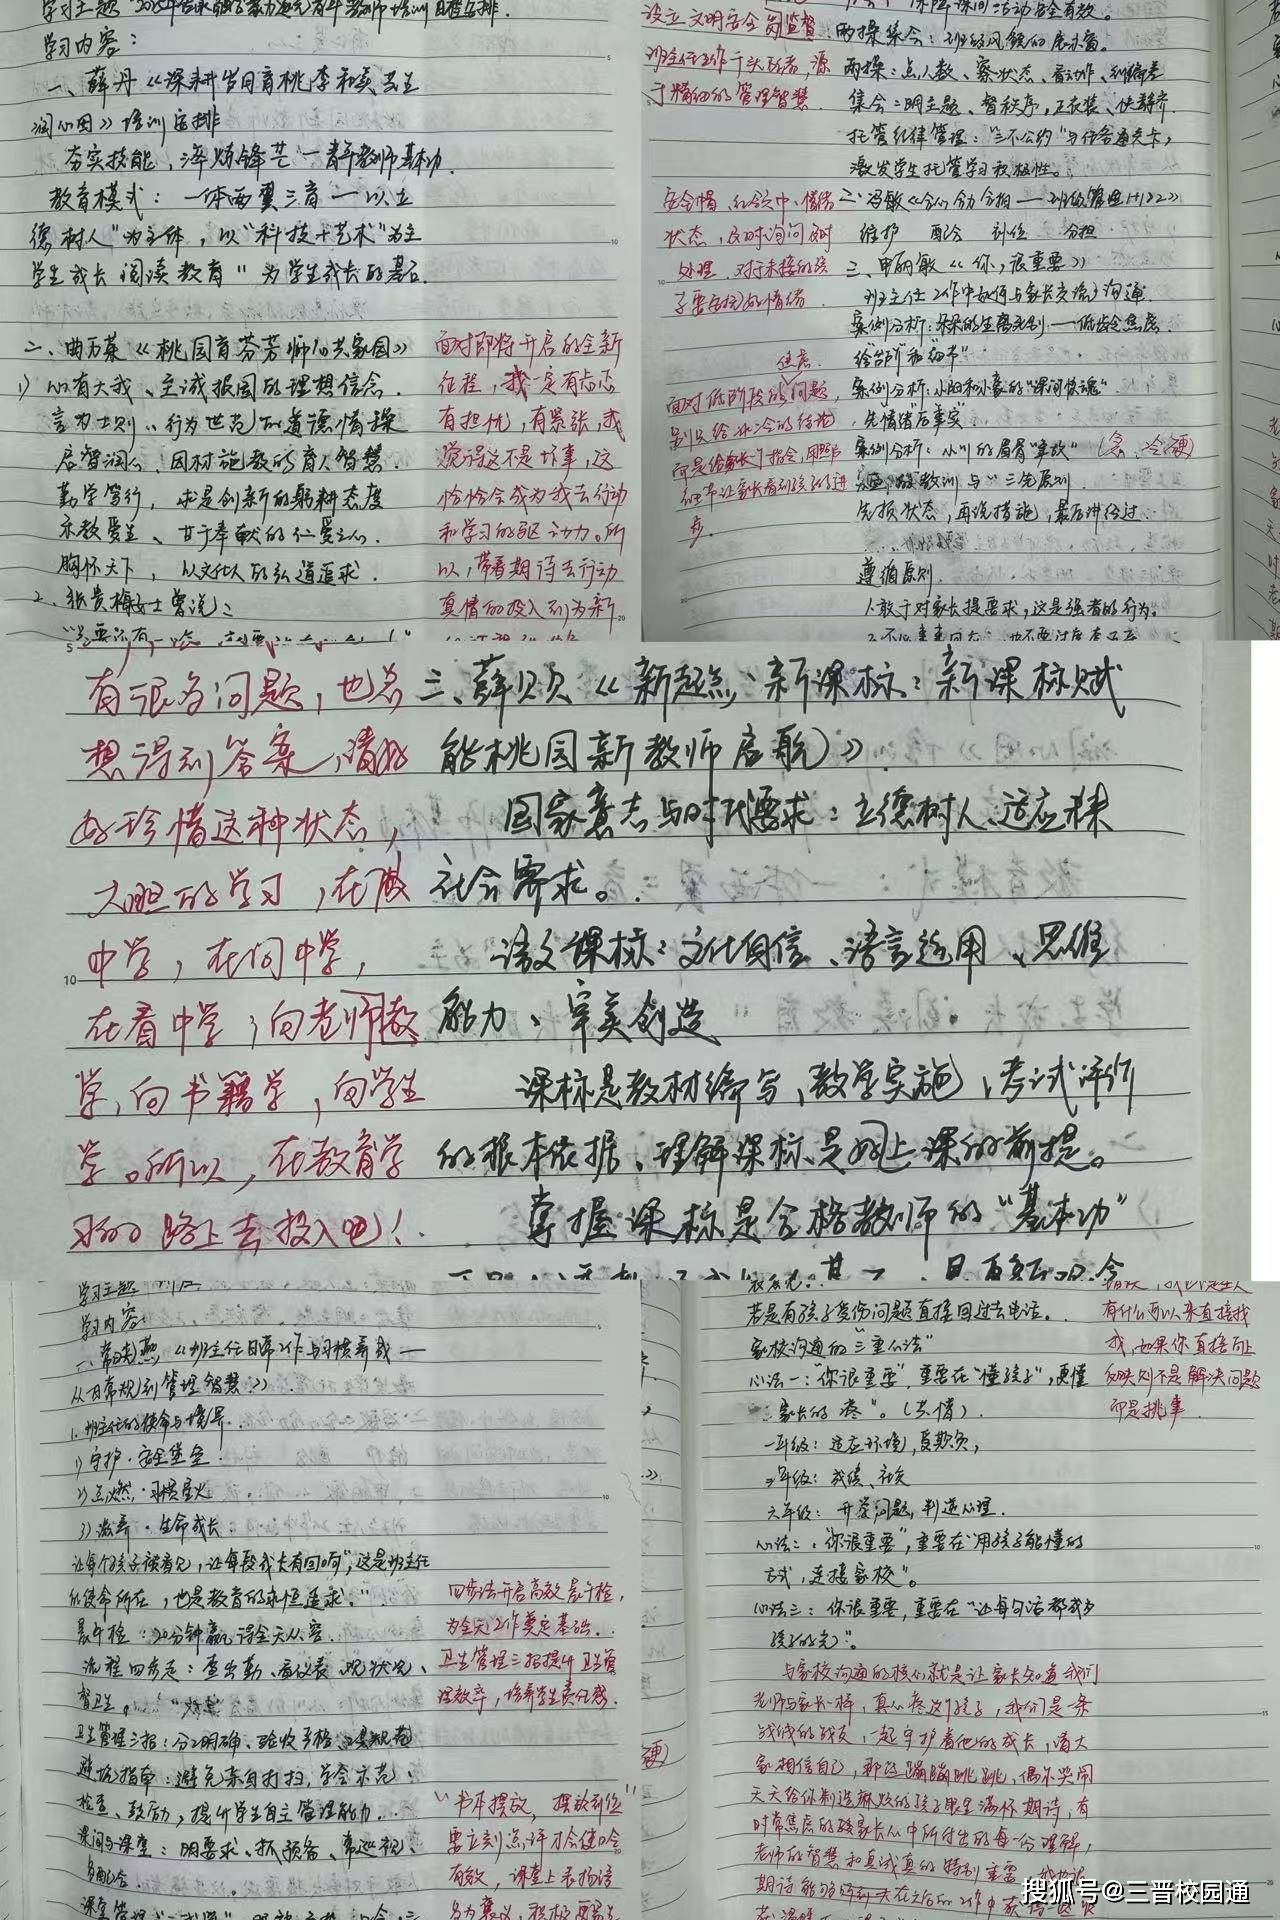 学习内容：
一、薛丹《深耕岁月育桃李和美共生
润心田》培训安排
夯实技能，淬炼锋芒一青年教师基本功
教育模式：一体两翼三育一以立
德树人"为主体，以"科技+艺术"为主
学生成长 阅读教育"为学生成长的基石.
二、曲万菊《桃园育芬芳师心共家园》
1）心有大我、至诚报国的理想信念.
言为士则、行为世范的道德情操
启智润心、因材施教的育人智慧.
勤学笃行，求是创新的躬耕态度
乐教爱生、甘于奉献的仁爱之心.
胸怀天下，以文化人的弘道追求.
2、张贵梅女士曾说：
面对即将开启的全新
征程，我一定有忐忑
有担忧，有紧张，我
觉得这不是坏事，这
恰恰会成为我去行动
和学习的驱动力。所
以，带着期待去行动
真情的投入到为新
设立文明安全岗监督
班主任工作千头万绪，源
于精细的管理智慧.
两操集会：班级风貌的展示窗
两操：点人数、察状态、看动作、纠偏差
集会：明主题、督秩序，正衣装、快静齐
托管纪律管理："三不公约"与任务通关卡，
激发学生托管学习积极性.
安全帽、红领巾、情绪
状态，及时询问及时
处理.对于未接的孩
子要安抚好情绪.
维护 配合 到位 分担.
三、申丽敏《你，很重要》
班主任工作中如何与家长交流沟通.
案例分析：朵朵的生离死别——低龄焦虑.
"给台阶"和"细节"
案例分析：小阳和小豪的"课间惊魂"
先"情绪"后"事实"
案例分析：小川的眉骨"事故"
教训与"三先原则
先报状态，再说措施，最后讲经过.
焦虑
面对低阶段的问题，
别只给冰冷的结论
步.
遵循原则.
1.敢于对家长提要求，这是强者的行为.
有很多问题，也总
想得到答案，请好
好珍惜这种状态，
大胆的学习，在做
中学，在问中学，
在看中学，向老师教
学，向书籍学，向学生
学。所以，在教育学
习的路上去投入吧！
三、薛贝贝《新起点、新课标：新课标赋
能桃园新教师启航》
国家意志与时代要求：立德树人、适应未来
社会需求。
语文课标：文化自信、语言运用、思维
能力、审美创造
课标是教材编写、教学实施、考试评价
的根本依据、理解课标是好上课的前提。
掌握课标是合格教师的"基本功"
学习主题
学习内容：
《班主任日常工作与习惯养成—
从日常规到管理智慧》
1.班主任的使命与境界.
1）守护·安全堡垒.
2）点燃·习惯星火.
3）滋养·生命成长.
让每个孩子被看见，让每段成长有回响"，这是班主任
的使命所在，也是教育的永恒追求."
晨午检：20分钟赢得全天从容.
流程四步走：查出勤、看仪表、观状况、
督卫生。
卫生管理三招：分工明确、验收严格、工具规范
避坑指南：避免亲自打扫，学会示范、
检查、鼓励，提升学生自主管理能力.
课间与课堂：明要求、抓预备、常巡视、
四步法开启高效晨午检，
为全天工作奠定基础.
卫生管理三招提升卫生管
理效率，培养学生责任感.
"书本摆放，摆放到位"
要立刻点评才会使口令
有效，课堂上表扬语
若是有孩子受伤问题直接回过去电话.
家校沟通的"三重心法"
心法一："你很重要"，重要在"懂孩子"，更懂
家长的"疼"。（共情）.
一年级：适应环境，受欺负，
三年级：成绩、社交
六年级：升学问题，叛逆心理.
心法二："你很重要"，重要在"用孩子能懂的
方式，连接家校"。
心法三：你很重要，重要在"让每句话都成为
孩子的光"。
有什么可以来直接找
我，如果你直接向上
反映则不是解决问题
而是挑事.
与家校沟通的核心就是让家长知道我们
老师与家长一样，真心疼这个孩子，我们是一条
战线的战友，一起守护着他的成长，请大
家相信自己，那些蹦蹦跳跳，偶尔哭闹
天天给你制造麻烦的孩子眼里满怀期待，有
时常焦虑的疑家长心中所付出的每一份理解，
搜狐号@三晋校园通